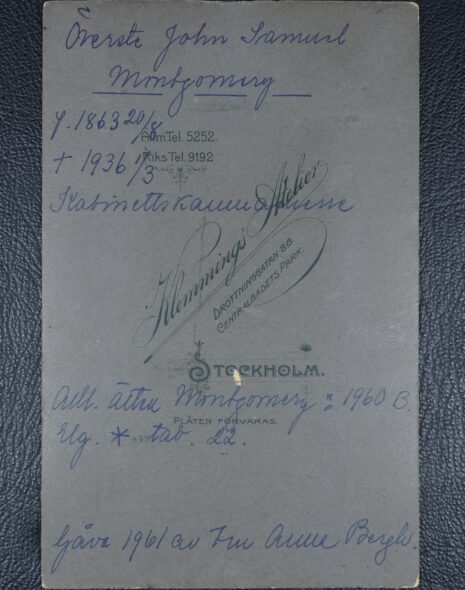 Överste John Samuel
Montgomery
f. 1863 20/8
Allm.Tel. 5252.
Riks Tel. 9192
+ 1936 1/3
Kabinettskammarherre
Klemmings Atelier
DROTTNINGATAN 88.
CENTRALBADETS PARK.
STOCKHOLM.
Adl. ätten Montgomery n:o 1960 B.
PLÅTEN FÖRVARAS.
Elg. * tab. 22.
Gåva 1961 av Anne